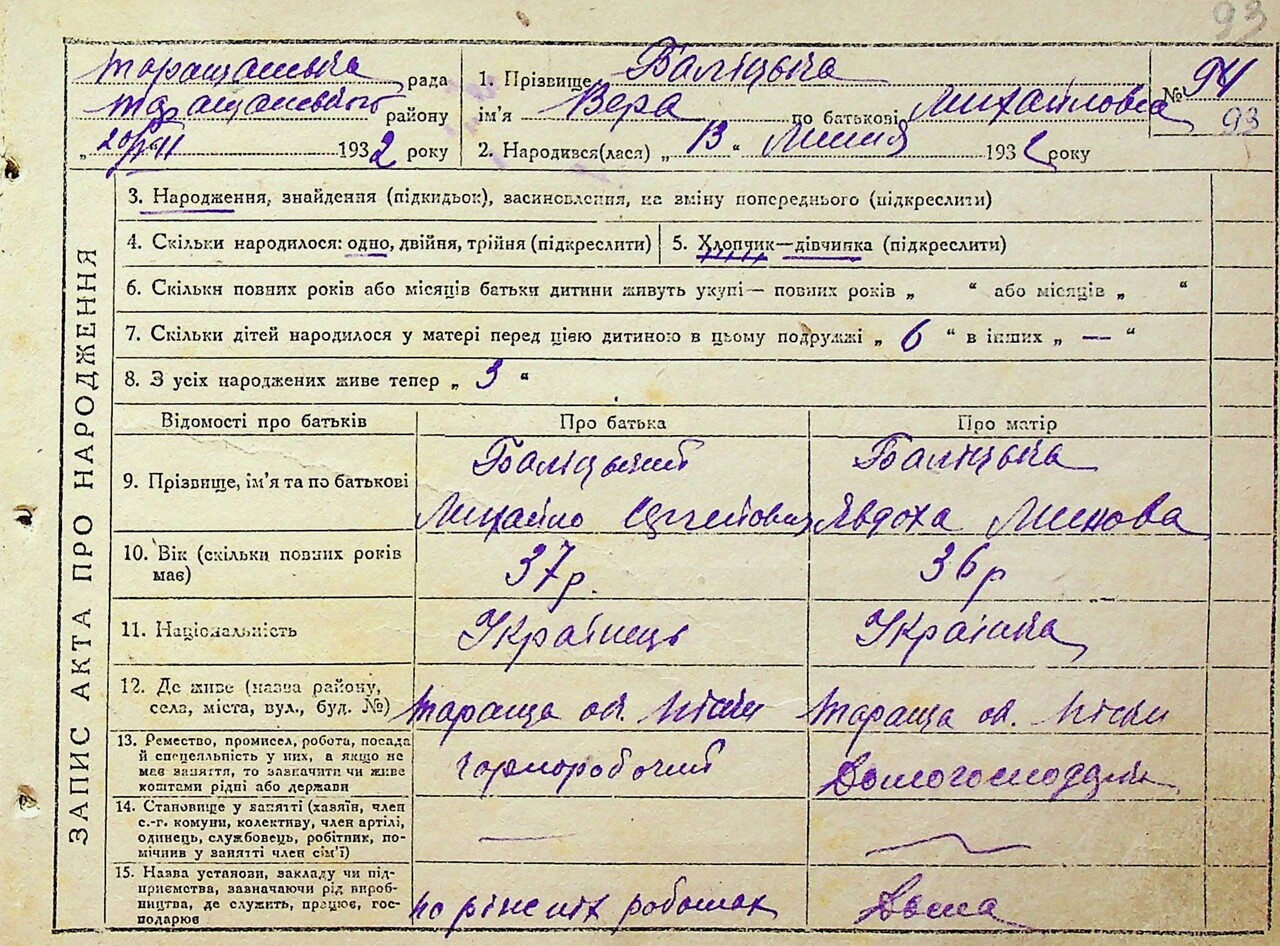 93
Таращанська рада
Таращанського району
„ 20/VII 1932 року
1. Прізвище Баліцька
ім'я Вера по батькові Михайловна
2. Народився(лася) „ 13 “ Липня 1932 року
№ 94
93
ЗАПИС АКТА ПРО НАРОДЖЕННЯ
3. Народження, знайдення (підкидьок), засиновлення, на зміну попереднього (підкреслити)
4. Скільки народилося: одно, двійня, трійня (підкреслити)
5. Хлопчик—дівчинка (підкреслити)
6. Скільки повних років або місяців батьки дитини живуть укупі— повних років „ “ або місяців „ “
7. Скільки дітей народилося у матері перед цією дитиною в цьому подружжі „ 6 “ в інших „ — “
8. З усіх народжених живе тепер „ 3 “
Відомості про батьків
Про батька
Про матір
9. Прізвище, ім'я та по батькові
Баліцький
Михайло
Баліцька
Явдоха
10. Вік (скільки повних років
має)
37р.
36р
11. Національність
Українець
Українка
12. Де живе (назва району,
села, міста, вул., буд. №)
Тараща
Тараща
13. Ремество, промисел, робота, посада
й спеціяльність у них, а якщо не
має заняття, то зазначити чи живе
коштами рідні або держави
Чорноробочий
Домогосподарка
14. Становище у занятті (хазяїн, член
с.-г. комуни, колективу, член артілі,
одинець, службовець, робітник, по-
мічник у занятті член сім'ї)
—
15. Назва установи, закладу чи під-
приємства, зазначаючи рід вироб-
ництва, де служить, працює, гос-
подарює
по різних роботах
Дома